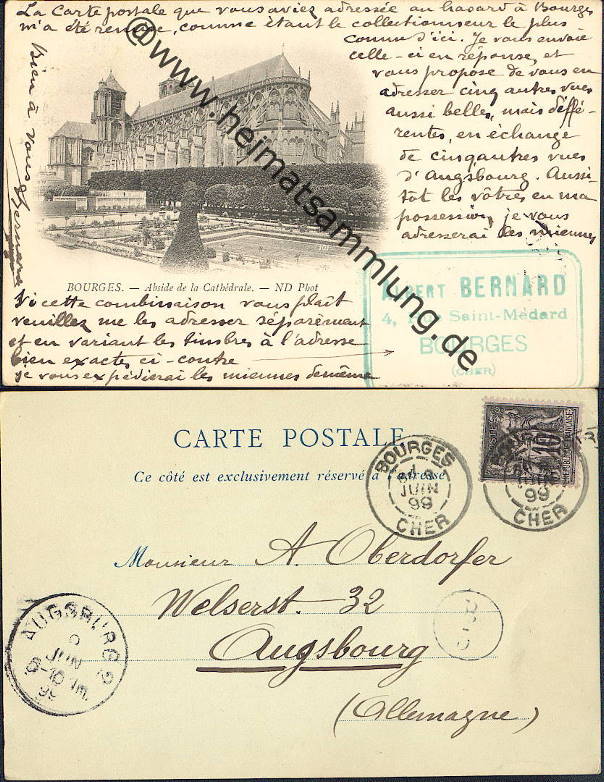 La Carte postale que vous aviez adressée au hasard à Bourges
m'a été remise, comme étant le collectionneur le plus
connu d'ici. Je vous envoie
celle-ci en réponse, et
vous propose de vous en
adresser cinq autres vues
aussi belles, mais diffé-
rentes, en échange
de cinq autres vues
d'Augsbourg. Aussi-
tôt les vôtres en ma
possession, je vous
adresserai les miennes
bien à vous
ABernard
BOURGES. — Abside de la Cathédrale. — ND Phot
Si cette combinaison vous plaît
veuillez me les adresser séparément
et en variant les timbres à l'adresse
bien exacte ci-contre
je vous expédierai les miennes de même
BERT BERNARD
4, Saint-Médard
BOURGES
(CHER)
@www.heimatsammlung.de
CARTE POSTALE
Ce côté est exclusivement réservé à l'adresse
BOURGES
JUIN
99
CHER
10
JUIN
99
CHER
Monsieur A. Oberdorfer
Welserst. 32
Augsbourg
(Allemagne)
AUGSBURG 2
JUN